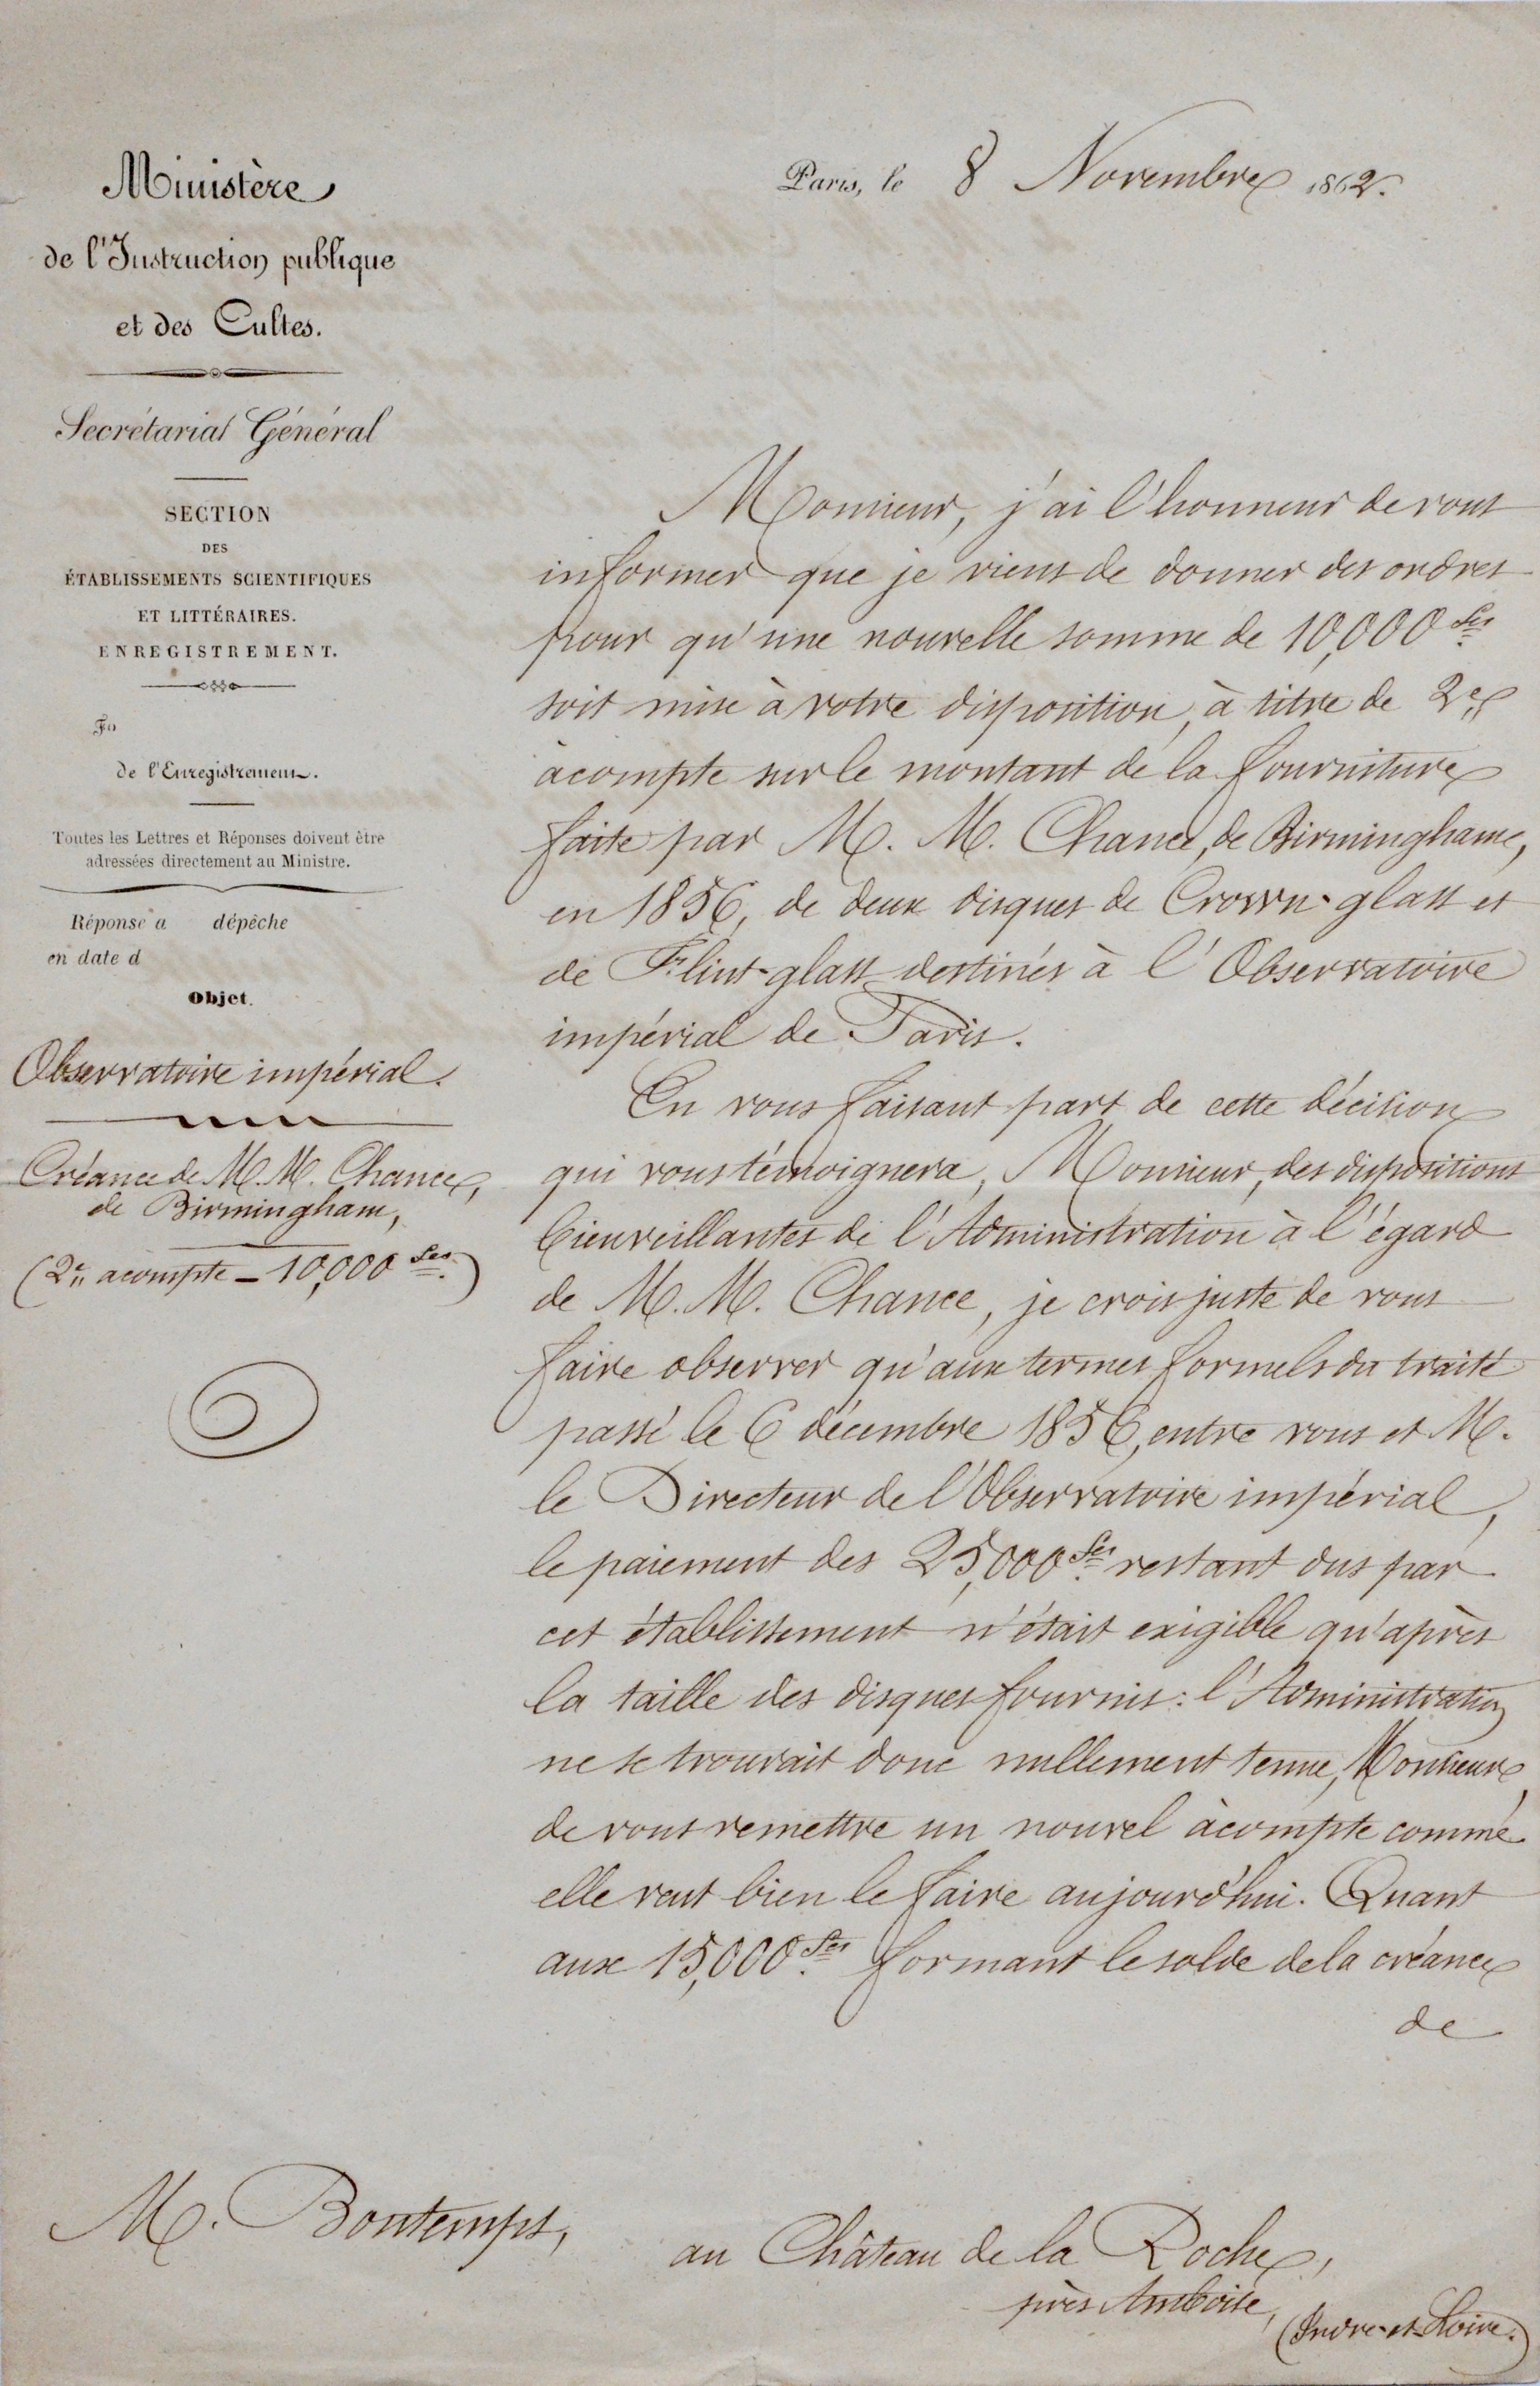 Ministère
de l'Instruction publique
et des Cultes.
Secrétariat Général
SECTION
DES
ÉTABLISSEMENTS SCIENTIFIQUES
ET LITTÉRAIRES.
ENREGISTREMENT.
Fo
de l'Enregistrement.
Toutes les Lettres et Réponses doivent être
adressées directement au Ministre.
Réponse a dépêche
en date d
Objet.
Observatoire impérial.
Créance de M. M. Chance,
de Birmingham,
(2e acompte - 10,000 fcs.)
Paris, le 8 Novembre 1862.
Monsieur, j'ai l'honneur de vous
informer que je viens de donner des ordres
pour qu'une nouvelle somme de 10,000 fcs.
soit mise à votre disposition, à titre de 2e
àcompte sur le montant de la fourniture
faite par M. M. Chance, de Birmingham,
en 1856, de deux disques de Crown-glass et
de Flint-glass destinés à l'Observatoire
impérial de Paris.
En vous faisant part de cette décision
qui vous témoignera, Monsieur, des dispositions
bienveillantes de l'Administration à l'égard
de M. M. Chance, je crois juste de vous
faire observer qu'aux termes formels du traité
passé le 6 décembre 1856, entre vous et M.
le Directeur de l'Observatoire impérial,
le paiement des 25,000 fcs. restant dus par
cet établissement n'était exigible qu'après
la taille des disques fournis : l'Administration
ne se trouvait donc nullement tenue, Monsieur,
de vous remettre un nouvel àcompte comme
elle veut bien le faire aujourd'hui. Quant
aux 15,000 fcs. formant le solde de la créance
de
M. Bontemps,
au Château de la Roche,
près Amboise,
(Indre-et-Loire.)